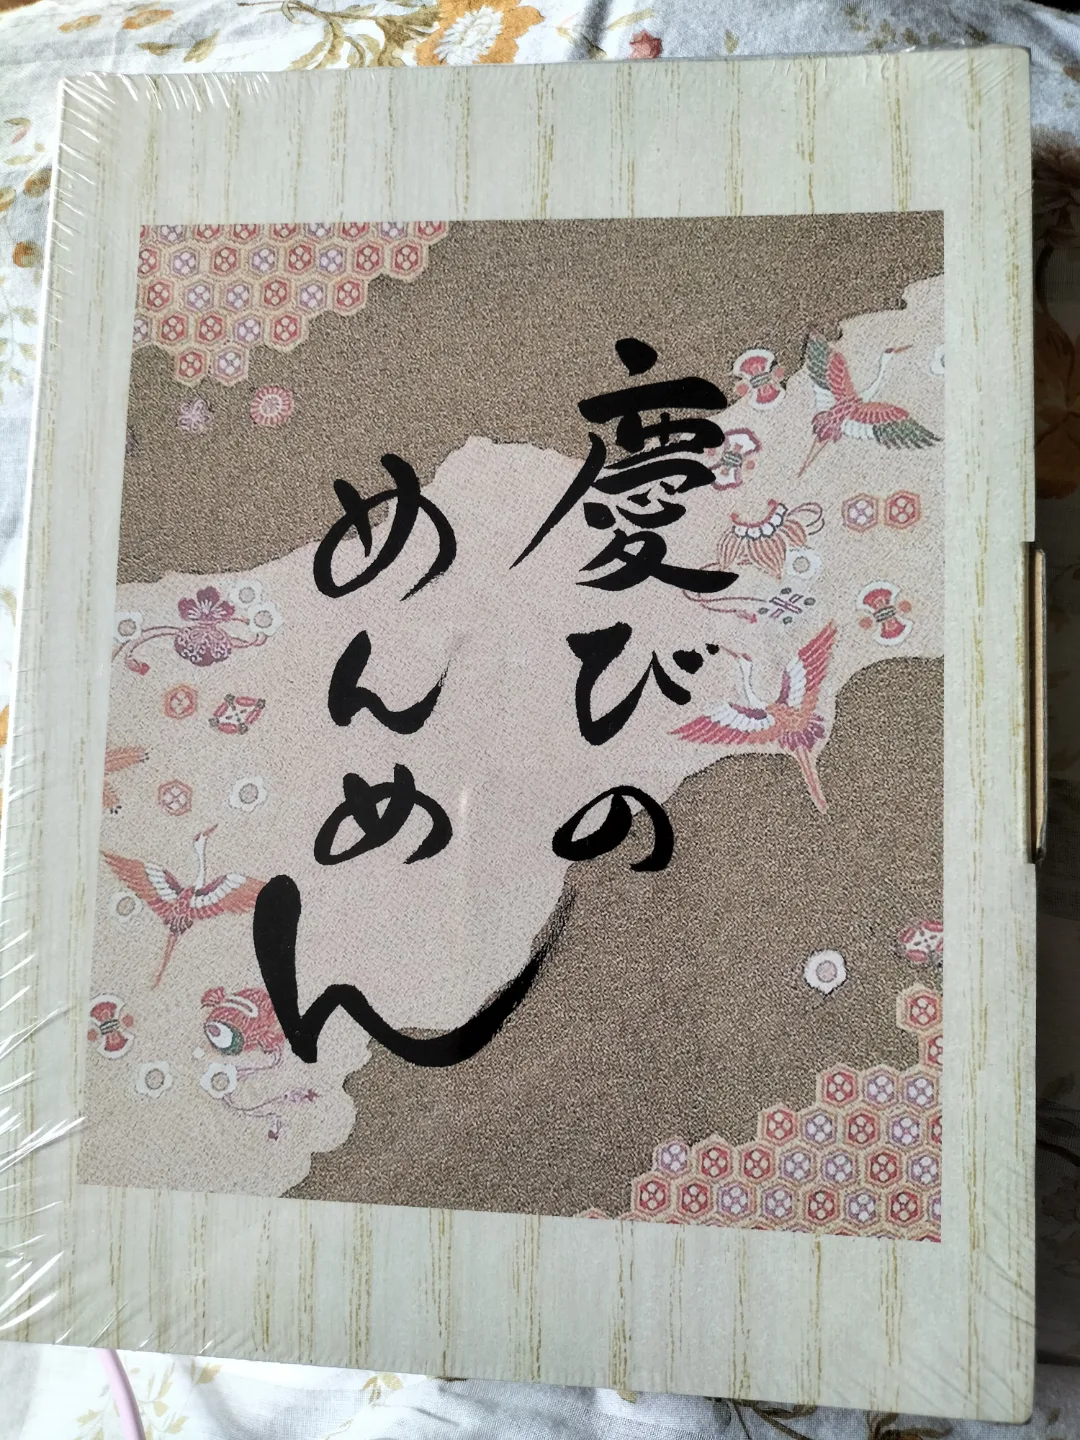 慶びの
めんめん